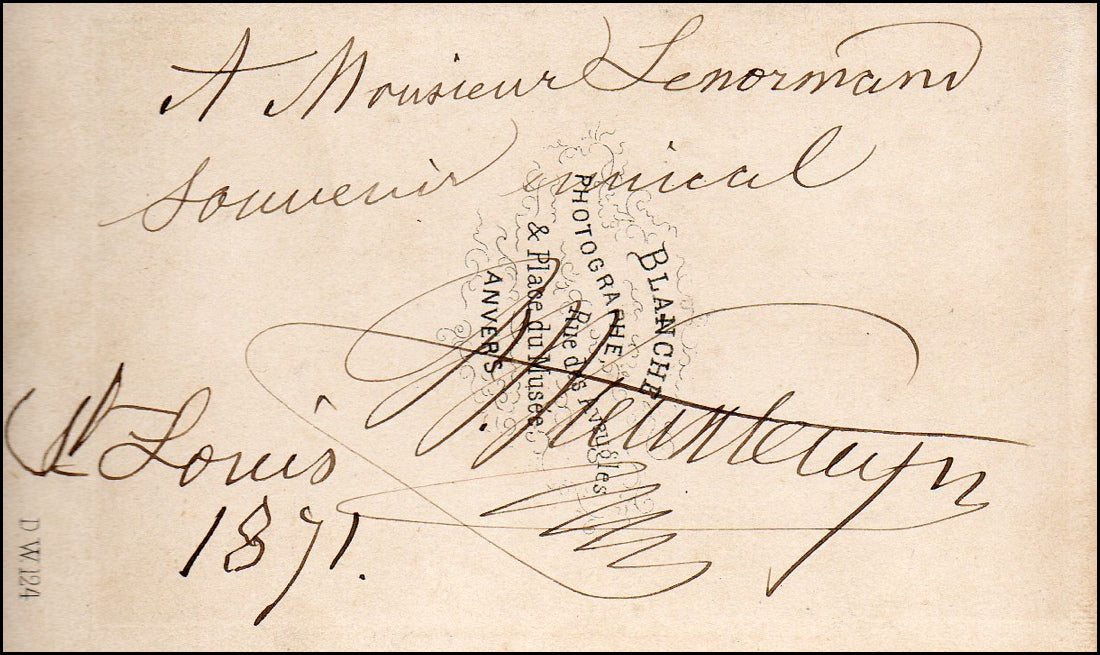 A Monsieur Lenormand
Souvenir amical
St Louis
1871.
BLANCHE
PHOTOGRAPHE,
Rue des Aveugles
& Place du Musée,
ANVERS
D W 124